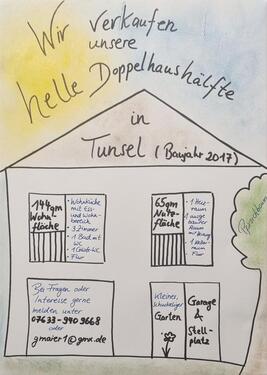 Wir verkaufen
unsere
helle Doppelhaushälfte
in
Tunsel (Baujahr 2017)
144qm
Wohn-
fläche
• Wohnküche
mit Ess-
und Wohn-
bereich
• 3 Zimmer
• 1 Bad mit
WC
• 1 Gäste-WC
• Flur
65qm
Nutz-
fläche
• 1 Heiz-
raum
• 1 ausge-
bauter
Raum
• 1 Keller-
raum
• Flur
Bei Fragen oder
Interesse gerne
melden unter
07633-9409668
oder
gmaier1@gmx.de
Kleiner,
schnuckeliger
Garten
Garage
&
Stell-
platz